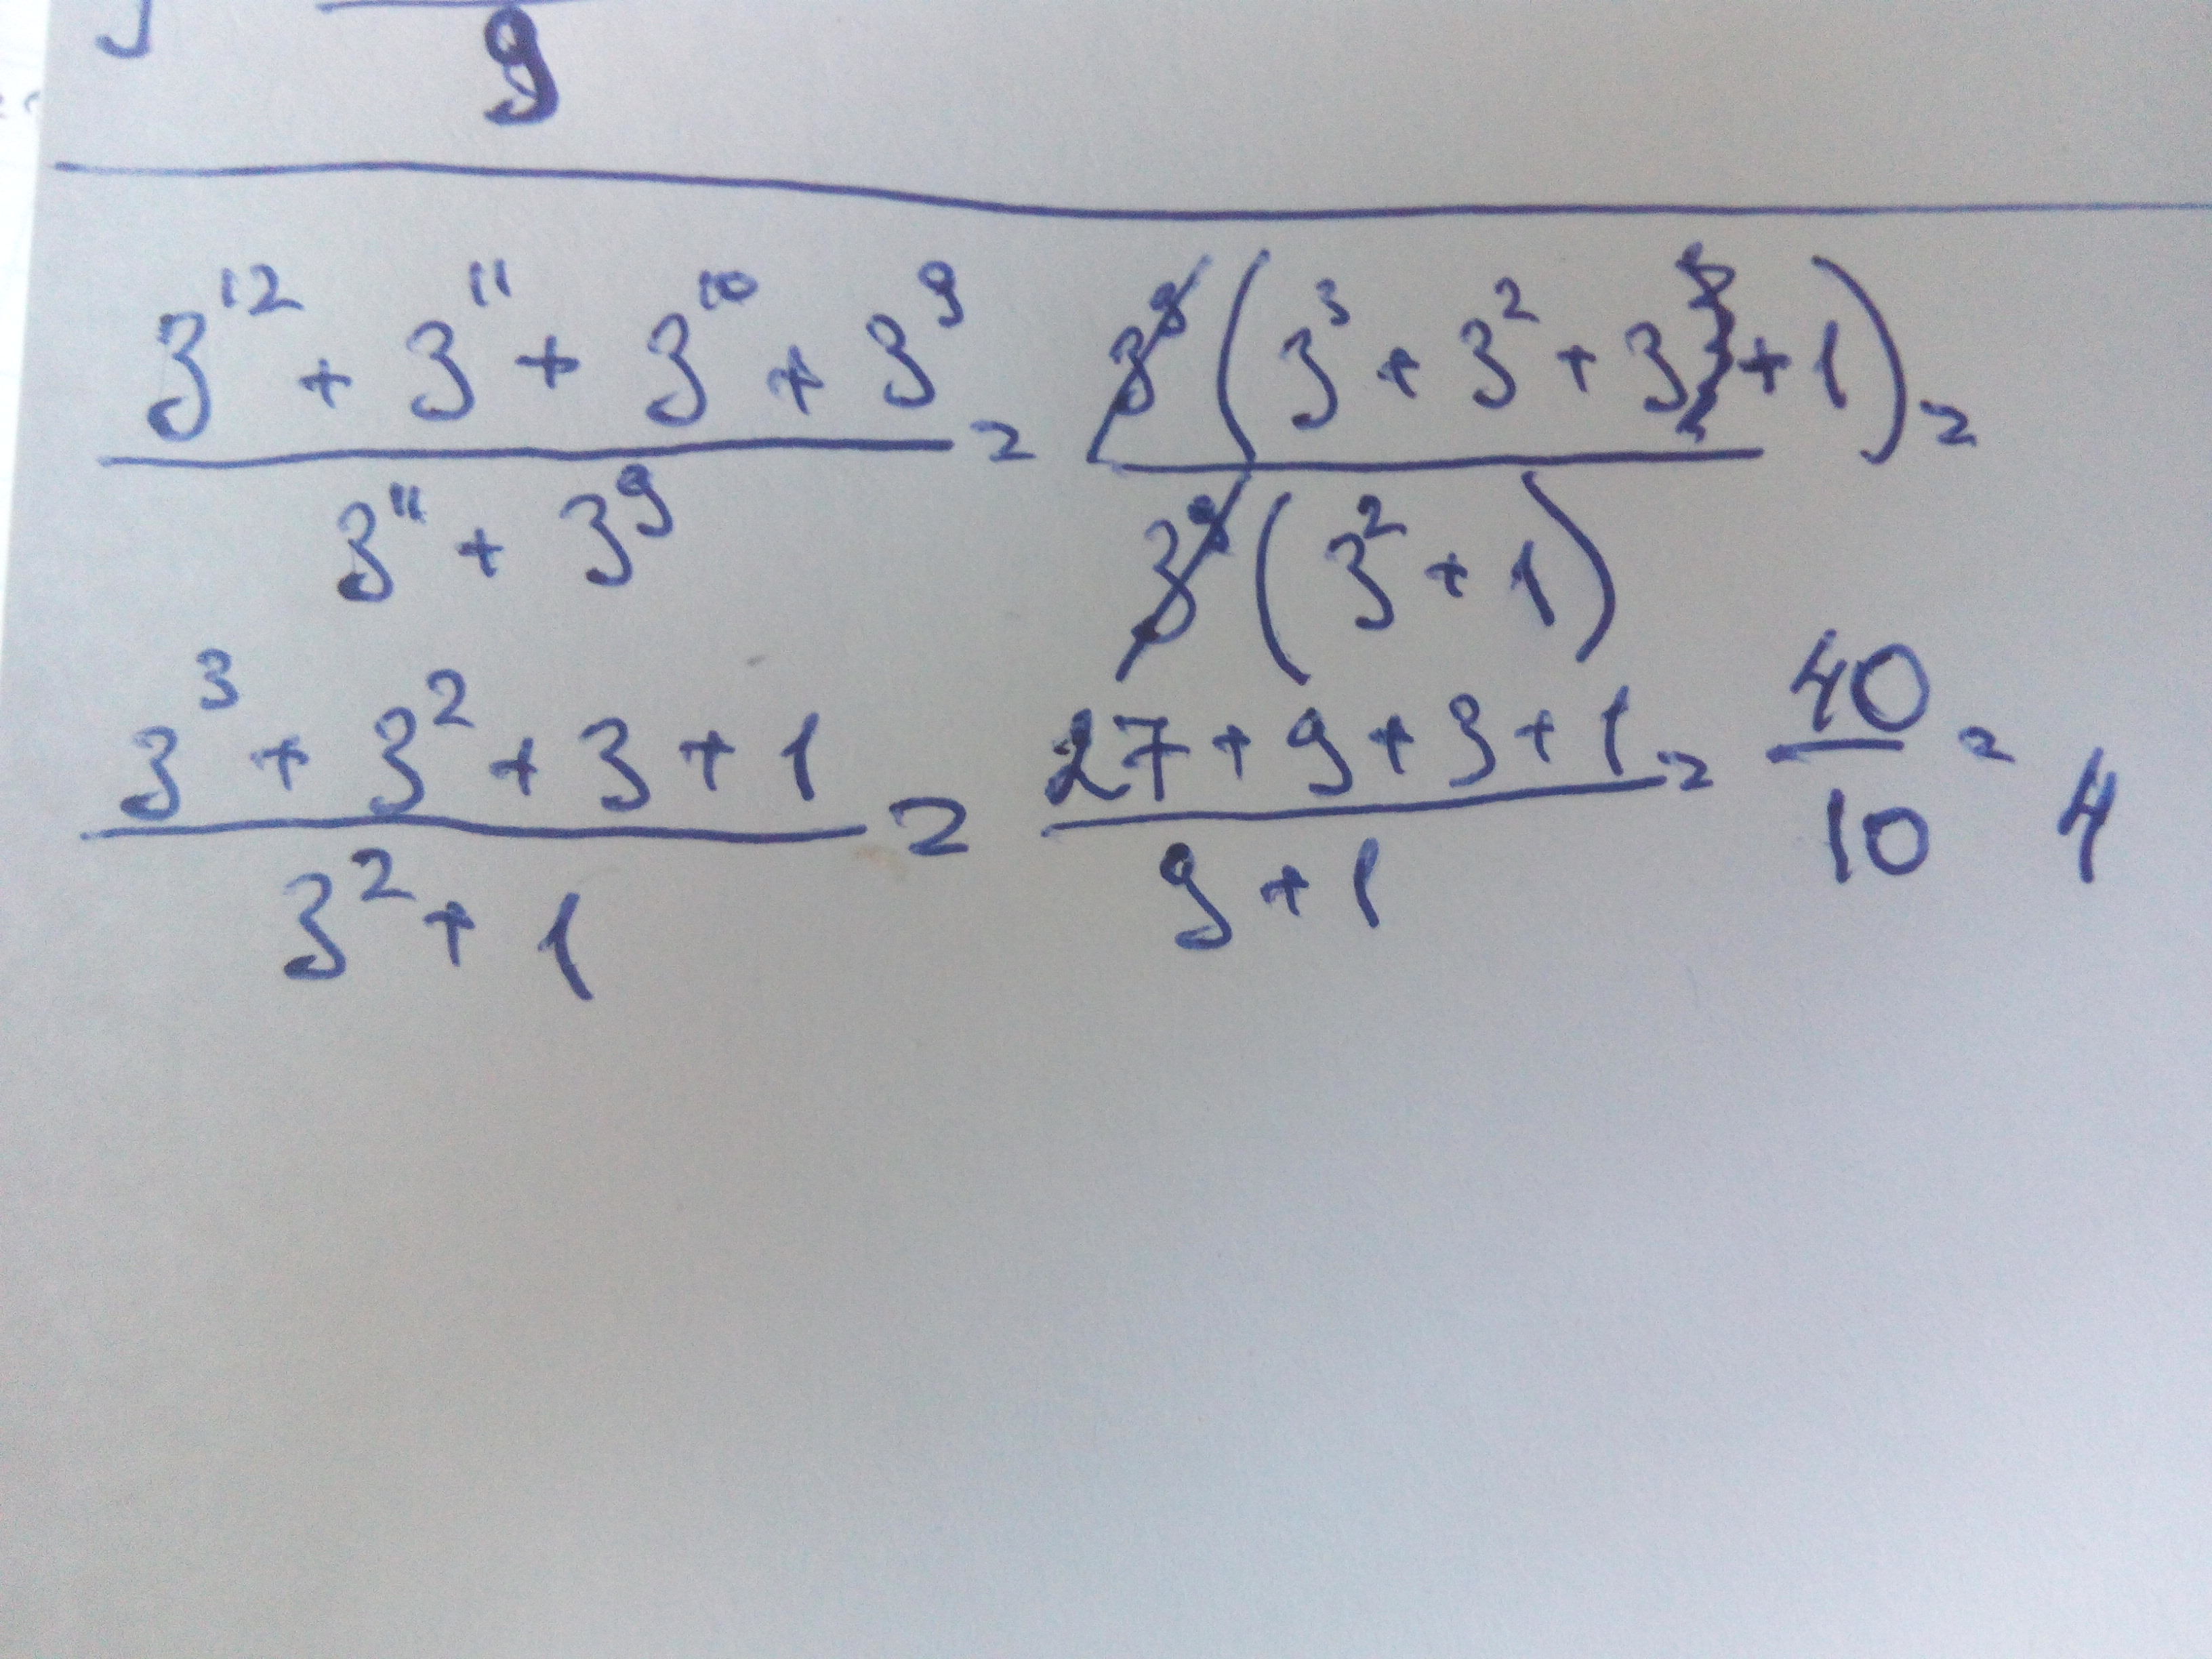 9
3¹² + 3¹¹ + 3¹⁰ + 3⁹ / 3¹¹ + 3⁹ = 3⁹ (3³ + 3² + 3 + 1) / 3⁹ (3² + 1) =
3³ + 3² + 3 + 1 / 3² + 1 = 27 + 9 + 3 + 1 / 9 + 1 = 40 / 10 = 4